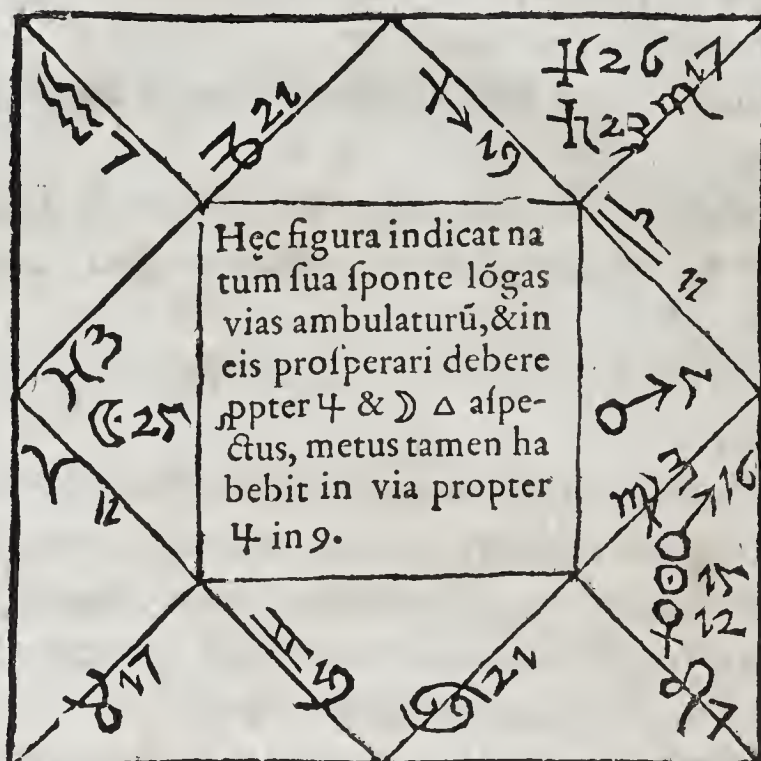 ♒ 7
♑ 21
♐ 19
♄ 26
♃ 23
♏ 17
♎ 11
♂ 5
♍ 3
♂ 16
☉ 15
♀ 12
♌ 7
♋ 21
♊ 19
♉ 17
♈ 12
☾ 25
♓ 3
Hęc figura indicat na
tum ſua ſponte lõgas
vias ambulaturũ, & in
eis proſperari debere
ꝓpter ♃ & ☽ △ aſpe-
ctus, metus tamen ha
bebit in via propter
♃ in 9.